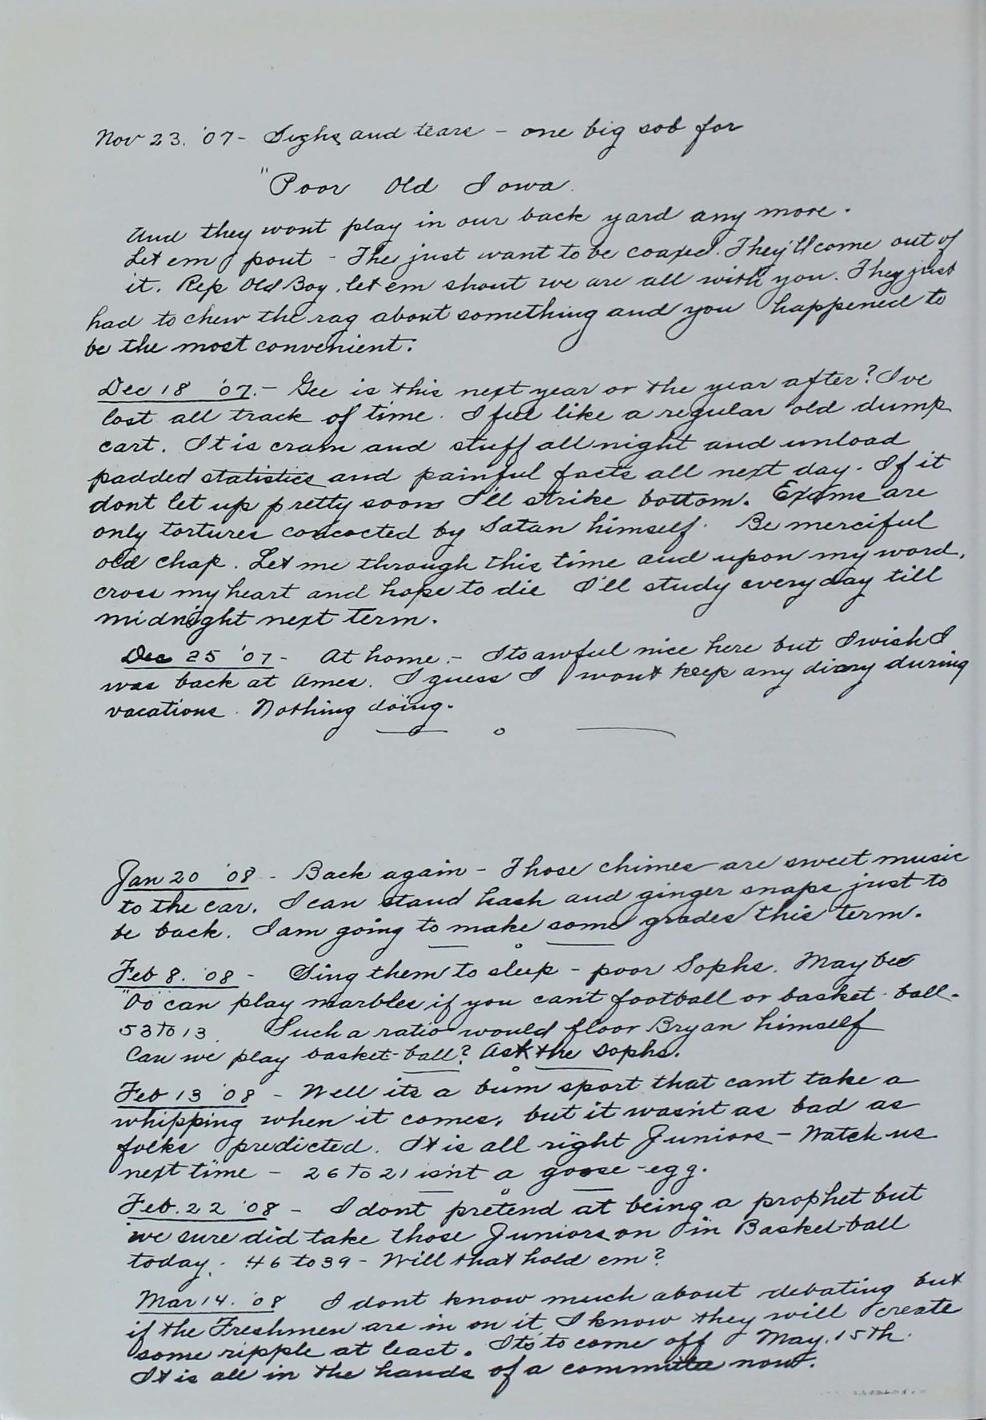 Nov 23. '07 - Sighs and tears - one big sob for
"Poor Old Iowa.
And they wont play in our back yard any more.
Let em pout - The just want to be coaxed. They'll come out of
it. Rep Old Boy, let em shout we are all with you. They just
had to chew the rag about something and you happened to
be the most convenient.
Dec 18 '07. - Gee is this next year or the year after? I've
lost all track of time. I feel like a regular old dump
cart. It is cram and stuff all night and unload
padded statistics and painful facts all next day. If it
dont let up pretty soon I'll strike bottom. Exams are
only tortures concocted by Satan himself. Be merciful
old chap. Let me through this time and upon my word,
cross my heart and hope to die I'll study every day till
midnight next term.
Dec 25 '07 - At home. - Its awful nice here but I wish I
was back at Ames. I guess I wont keep any diary during
vacations. Nothing doing.
Jan 20 '08 - Back again - Those chimes are sweet music
to the ear. I can stand hash and ginger snaps just to
be back. I am going to make some grades this term.
Feb 8. '08 - Sing them to sleep - poor Sophs. May bee
"Oo" can play marbles if you cant football or basket-ball.
53 to 13. Such a ratio would floor Bryan himself
Can we play basket-ball? Ask the Sophs.
Feb 13 '08 - Well its a bum sport that cant take a
whipping when it comes, but it wasn't as bad as
folks predicted. It is all right Juniors - Watch us
next time - 26 to 21 isn't a goose-egg.
Feb. 22 '08 - I dont pretend at being a prophet but
we sure did take those Juniors on in Basket-ball
today. - 46 to 39 - Will that hold em?
Mar 14. '08 I dont know much about debating but
if the Freshmen are in on it I know they will create
some ripple at least. Its to come off May. 15th.
It is all in the hands of a committa now.